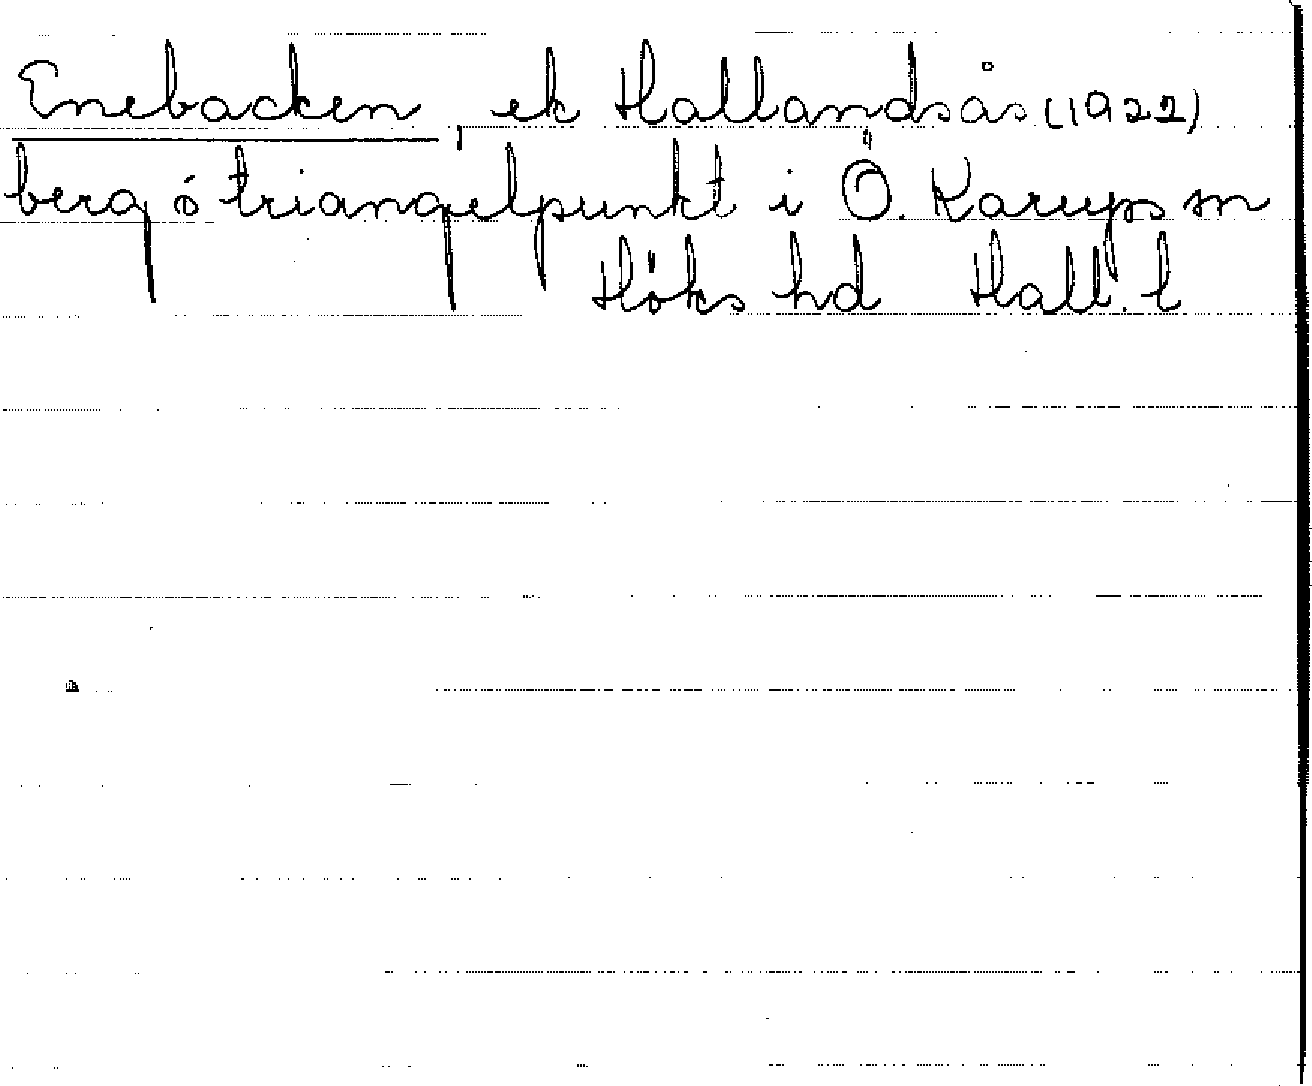 Enebacken, ek Hallandsås (1922)
berg ö triangelpunkt i Ö. Karups sn
Höks hd Hall. l